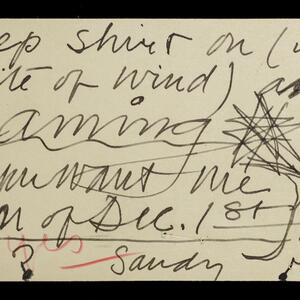 ep shirt on (
ite of wind) a
aming
you want me
n of Dec. 1st
yes Sandy
?